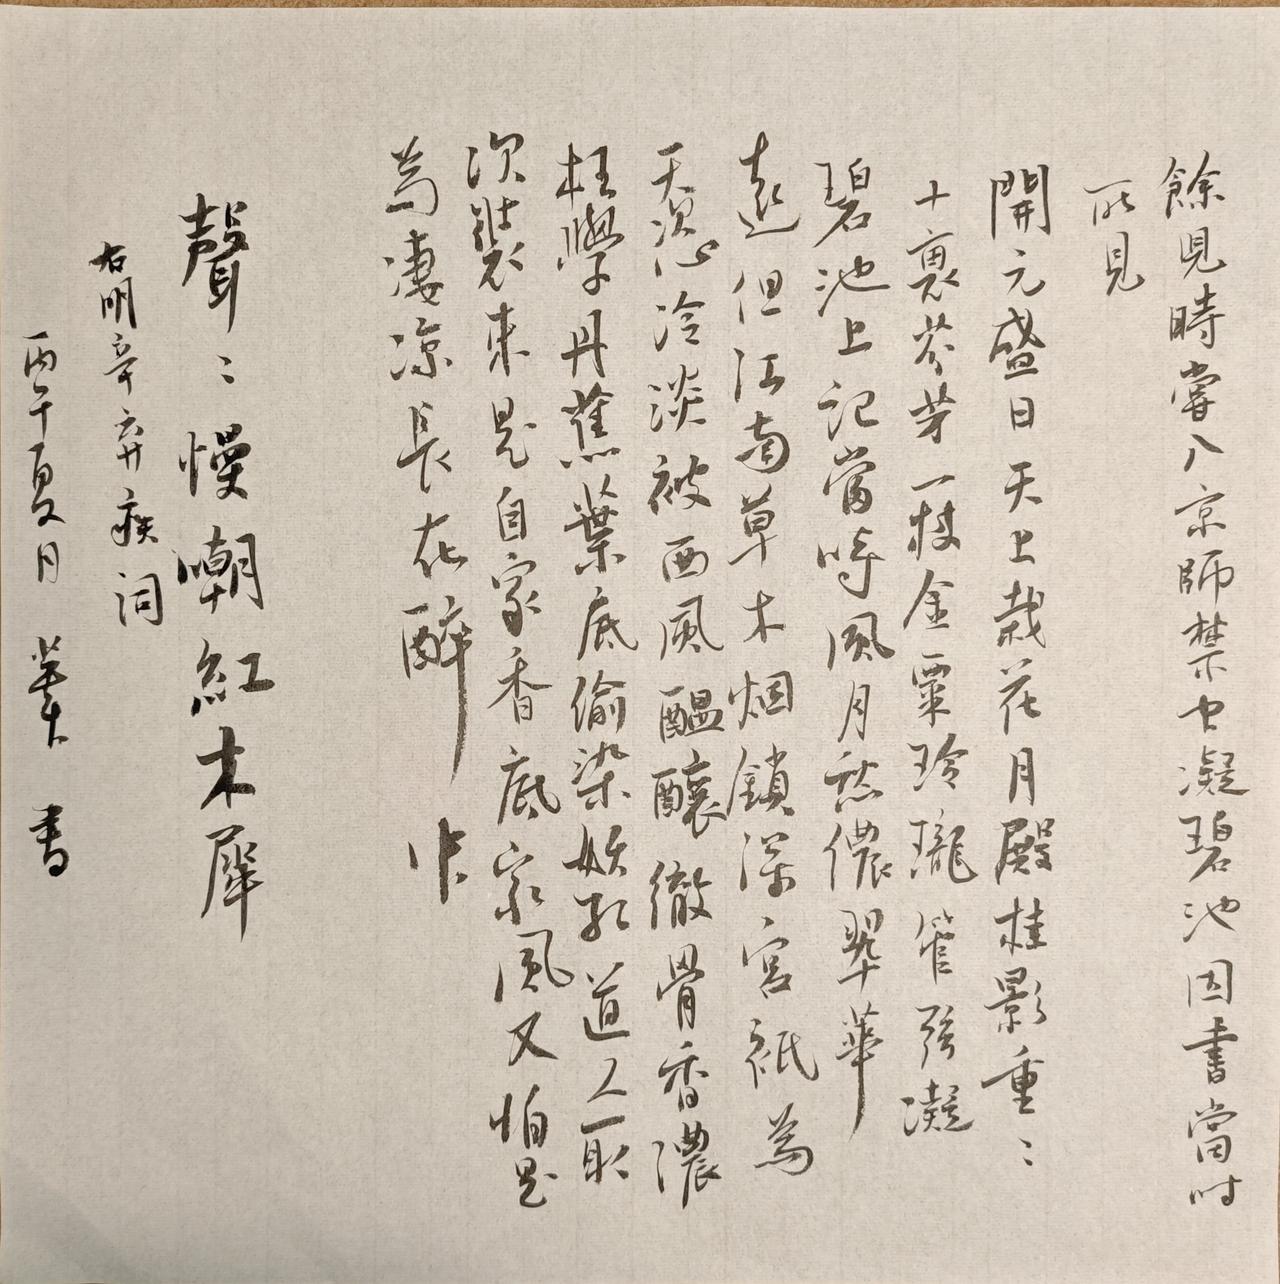 餘児時嘗入京師禁中凝碧池因書當時
所見
開元盛日天上栽花月殿桂影重〻
十裏芬芳一枝金粟玲瓏管弦凝
碧池上記當時風月愁儂翠華
遠但江南草木烟鎖深宮祇為
天姿冷淡被西風醞釀徹骨香濃
枉學丹蕉葉底偷染妖紅道人取
次裝束是自家香底家風又怕是
為凄涼長在醉中
聲〻慢嘲紅木犀
右明辛棄疾詞
丙午夏月 書